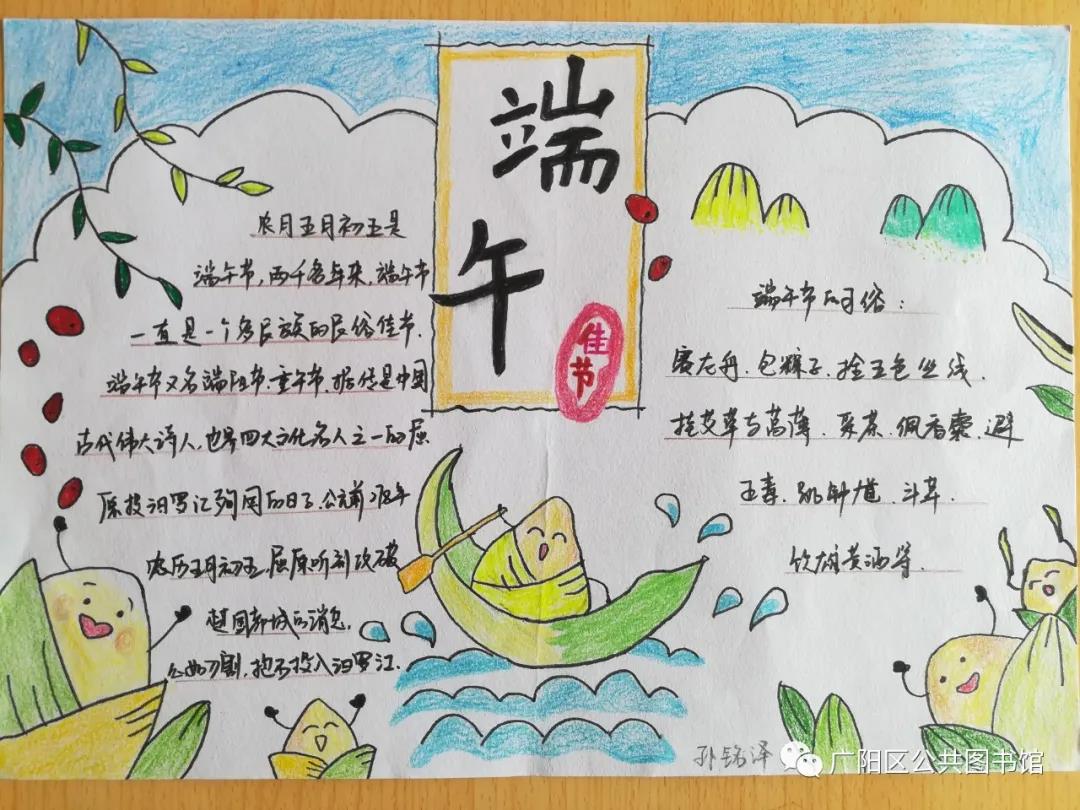 端午
佳节
农月五月初五是
端午节,两千多年来,端午节
一直是一个多民族的民俗佳节.
端午节又名端阳节.重午节.据传是中国
古代伟大诗人,也是四大文化名人之一的屈
原投汨罗江殉国的日子.公元前278年
农历五月初五,屈原听到攻破
赵国都城的消息,
心如刀割,抱石投入汨罗江.
端午节的习俗:
赛龙舟.包粽子.拴五色丝线.
挂艾草与菖蒲.采茶.佩香囊.避
五毒.跳钟馗.斗草.
饮雄黄酒等.
孙铭泽
广阳区公共图书馆